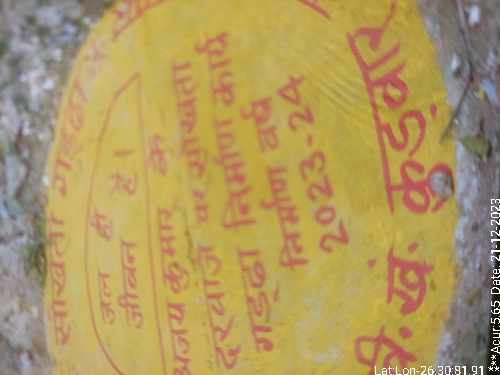 सोखता गड्ढा
जल ही
जीवन है।
अजय कुमार के
दरवाजे पर सोखता
गड्ढा निर्माण कार्य
निर्माण वर्ष
2023-24
वि.खं. कुड़वार
Lat:Lon-26.30:81.91
***Acur:5.65 Date: 21-12-2023